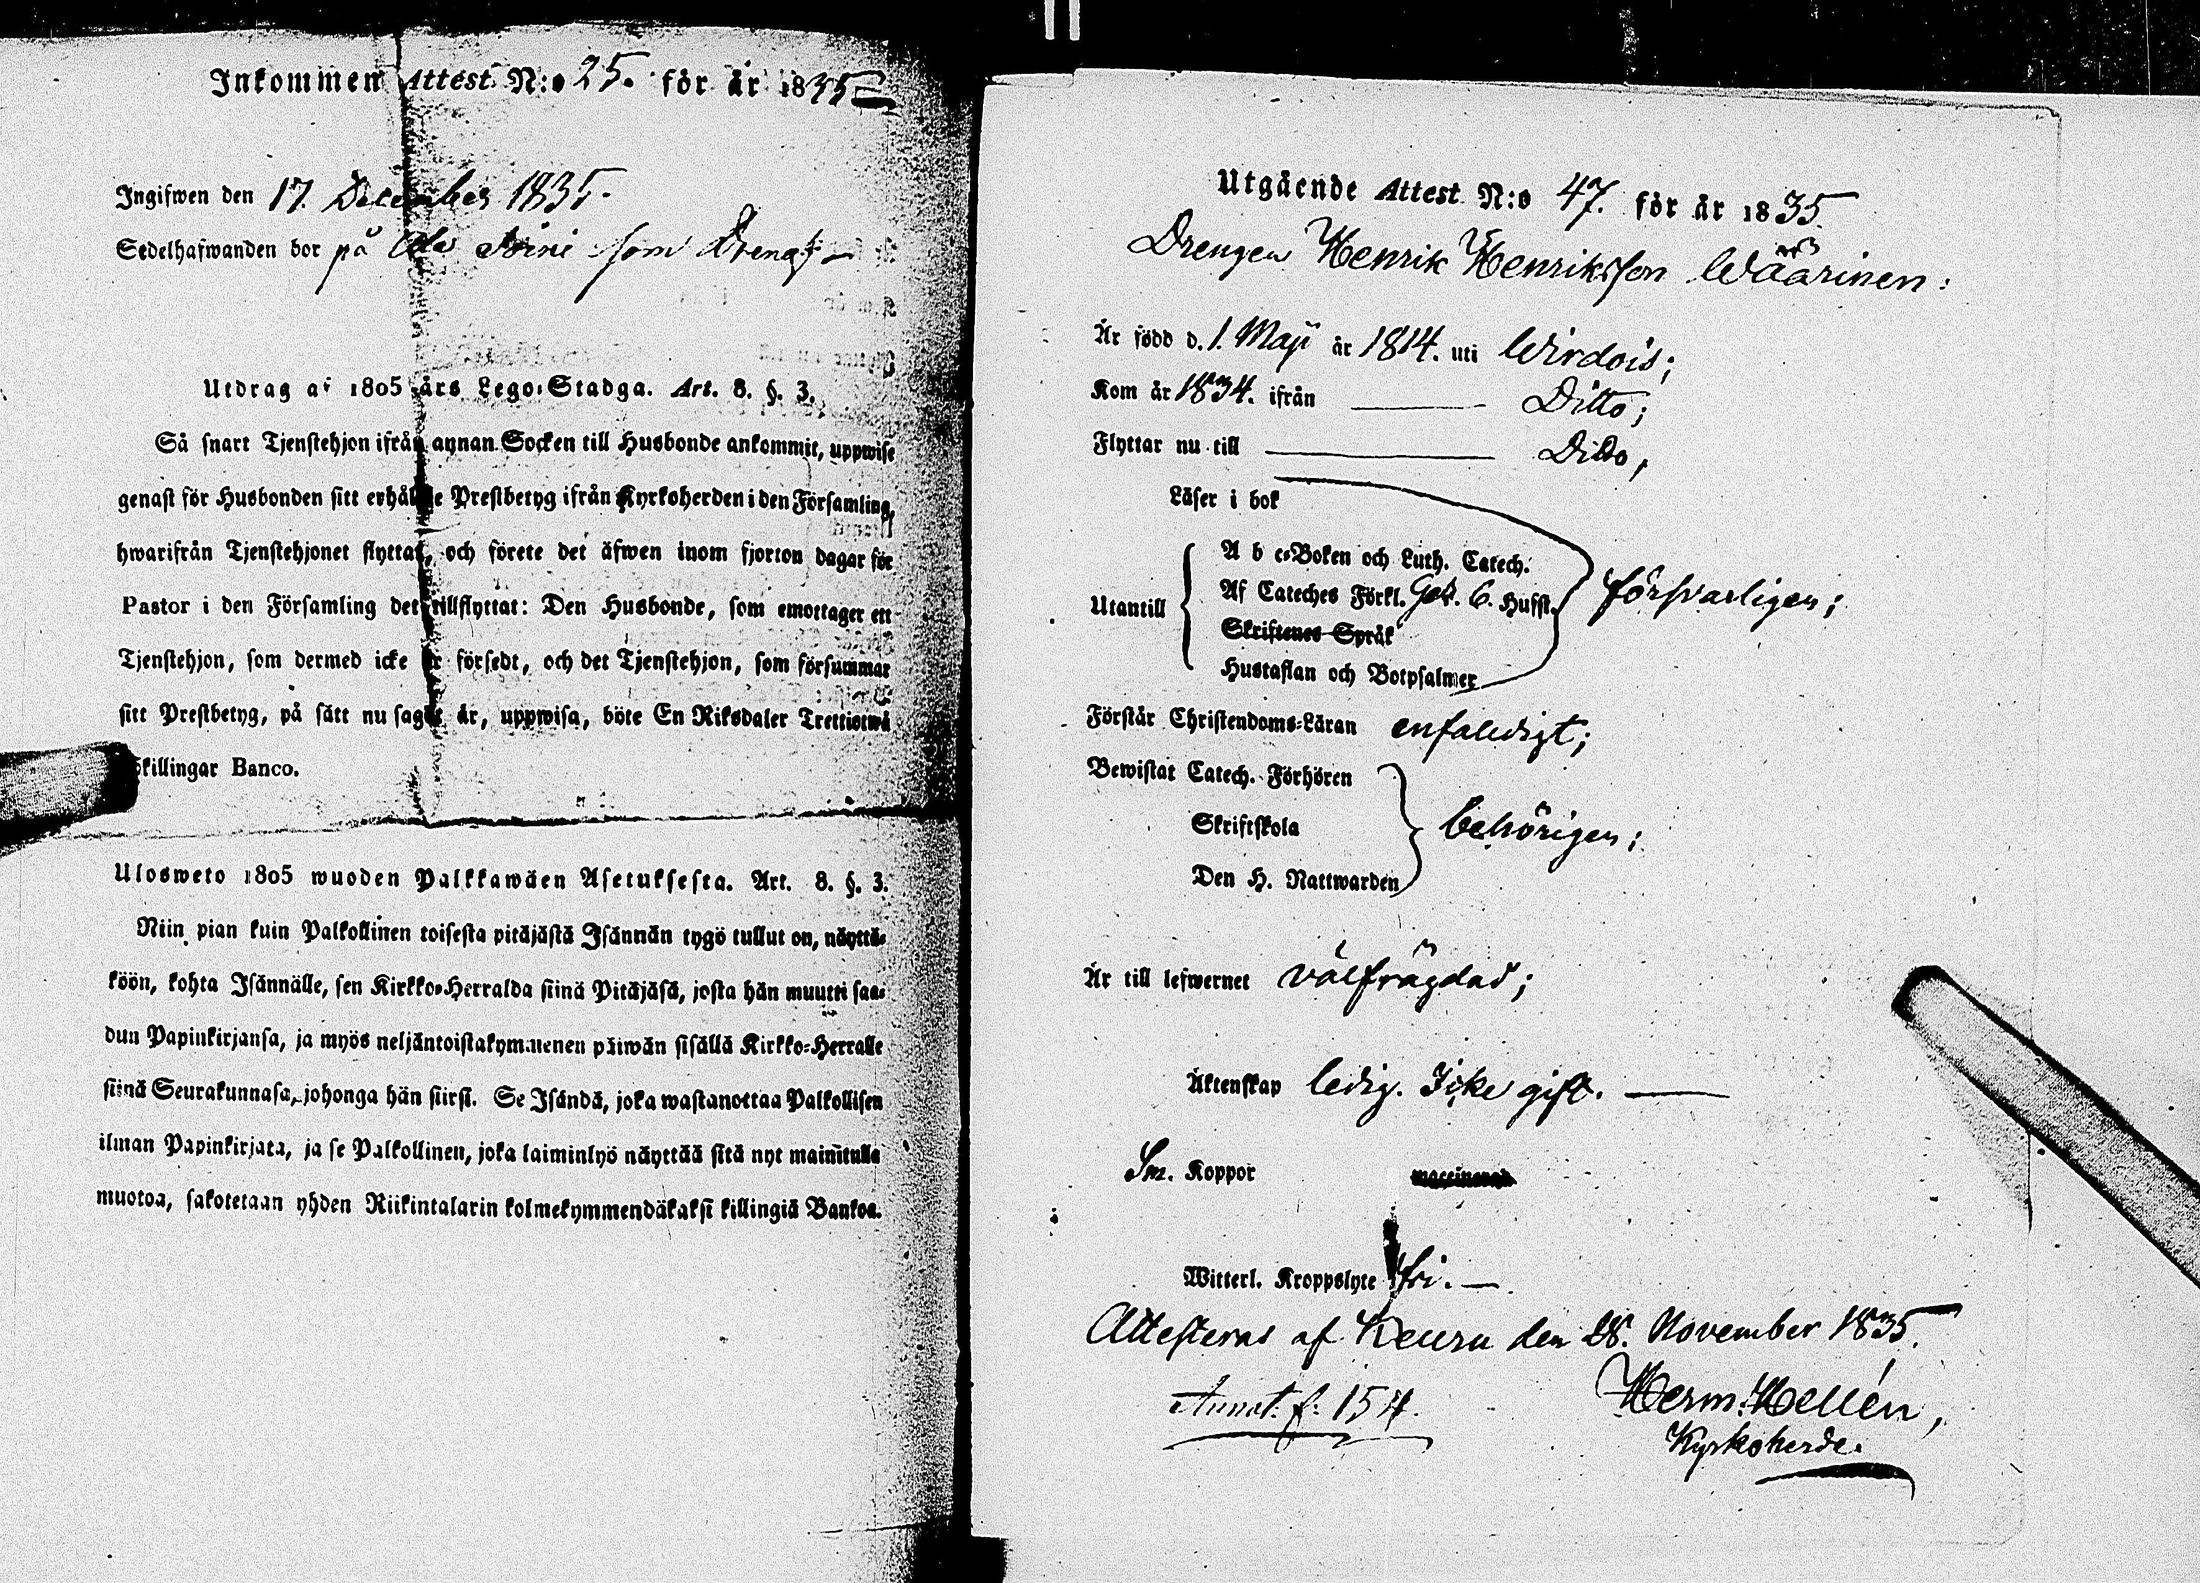 Inkommen Attest N:o 25. för år 1835
Ingifwen den 17. December 1835.
Sedelhafwanden bor på som Dreng.
Utdrag af 1805 års Lego-Stadga. Art. 8. §. 3.
Så snart Tjenstehjon ifrån annan Socken till Husbonde ankommit, uppwise
genast för Husbonden sitt erhållne Prestbetyg ifrån Kyrkoherden i den Församling,
hwarifrån Tjenstehjonet flyttat, och förete det äfwen inom fjorton dagar för
Pastor i den Församling det tillflyttat: Den Husbonde, som emottager ett
Tjenstehjon, som dermed icke är försedt, och det Tjenstehjon, som försummar
sitt Prestbetyg, på sätt nu sagdt är, uppwisa, böte En Riksdaler Trettiotwå
Skillingar Banco.
Ulosweto 1805 wuoden Palkkawäen Asetuksesta. Art. 8. §. 3.
Niin pian kuin Palkollinen toisesta pitäjästä Isännän tygö tullut on, näyttä-
köön, kohta Isännälle, sen Kirkko-Herralda siinä Pitäjäsä, josta hän muutti saa-
dun Papinkirjansa, ja myös neljäntoistakymmenen päiwän sisällä Kirkko-Herralle
siinä Seurakunnasa, johonga hän siirsi. Se Isändä, joka wastanottaa Palkollisen
ilman Papinkirjata, ja se Palkollinen, joka laiminlyö näyttää sitä nyt mainitulla
muotoa, sakotetaan yhden Riikintalarin kolmekymmendäkaksi killingiä Bankoa.
Utgående Attest N:o 47. för år 1835.
Drengen Henrik Henriksson Wäärinen:
Är född d. 1. Maji år 1814. uti Wirdois;
Kom år 1834. ifrån Ditto;
Flyttar nu till Ditto,
Läser i bok
A b c-Boken och Luth. Catech.
Utantill Af Cateches Förkl. God. 6. Hufst. försvarligen;
Skriftenes Språk
Hustaflan och Botpsalmer
Förstår Christendoms-Läran enfaldigt;
Bewistat Catech. Förhören
Skriftskola behörigen;
Den H. Nattwarden
Är till lefwernet välfrägdad;
Äktenskap ledig. Icke gift.
Sm. Koppor vaccinerad
Witterl. Kroppslyte fri.
Attesteras af Keuru den 28. November 1835.
Annot. f. 154.
Herm. Hellén,
Kyrkoherde.